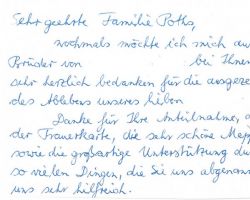 Sehr geehrte Familie Poths,
nochmals möchte ich mich au
Brüder von bei Ihnen
sehr herzlich bedanken für die ausgeze
des Ablebens unseres lieben
Danke für Ihre Anteilnahme, a
der Trauerkarte, die sehr schöne Mapp
sowie die großartige Unterstützung du
so vielen Dingen, die Sie uns abgenom
uns sehr hilfreich.